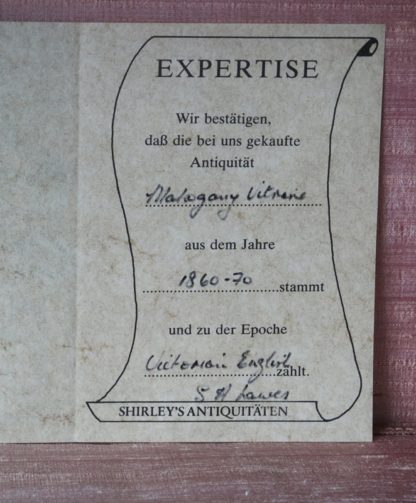 EXPERTISE
Wir bestätigen,
daß die bei uns gekaufte
Antiquität
Mahogany Vitrine
aus dem Jahre
1860-70 stammt
und zu der Epoche
Victorian English zählt.
S H Lawes
SHIRLEY'S ANTIQUITÄTEN